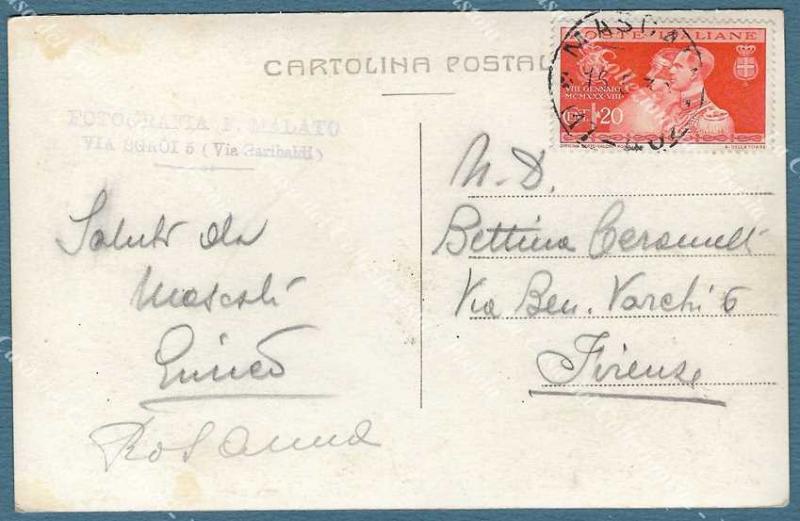 CARTOLINA POSTAL
POSTE ITALIANE
VIII GENNAIO
MCMXXX·VIII
CENT 20
FOTOGRAFIA F. MALATO
VIA SGROI 5 (Via Garibaldi)
Saluti da
Mascali
Enrico
Rosanna
N. D.
Bettina Ceramelli
Via Ben. Varchi 6
Firenze